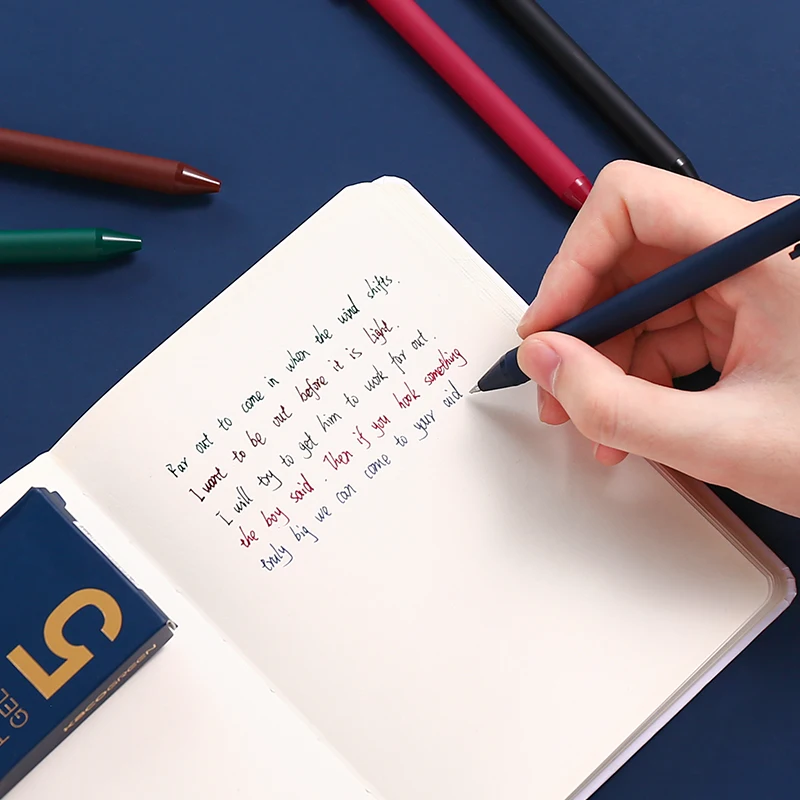 Far out to come in when the wind shifts.
I want to be out before it is light.
I will try to get him to work far out.
the boy said. Then if you hook something
truly big we can come to your aid
5
GEL
KACOGREEN